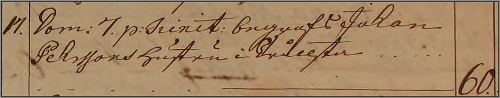 17. Dom: 7. p: Trinit: begrofs Johan
Pehrssons hustru i
60.